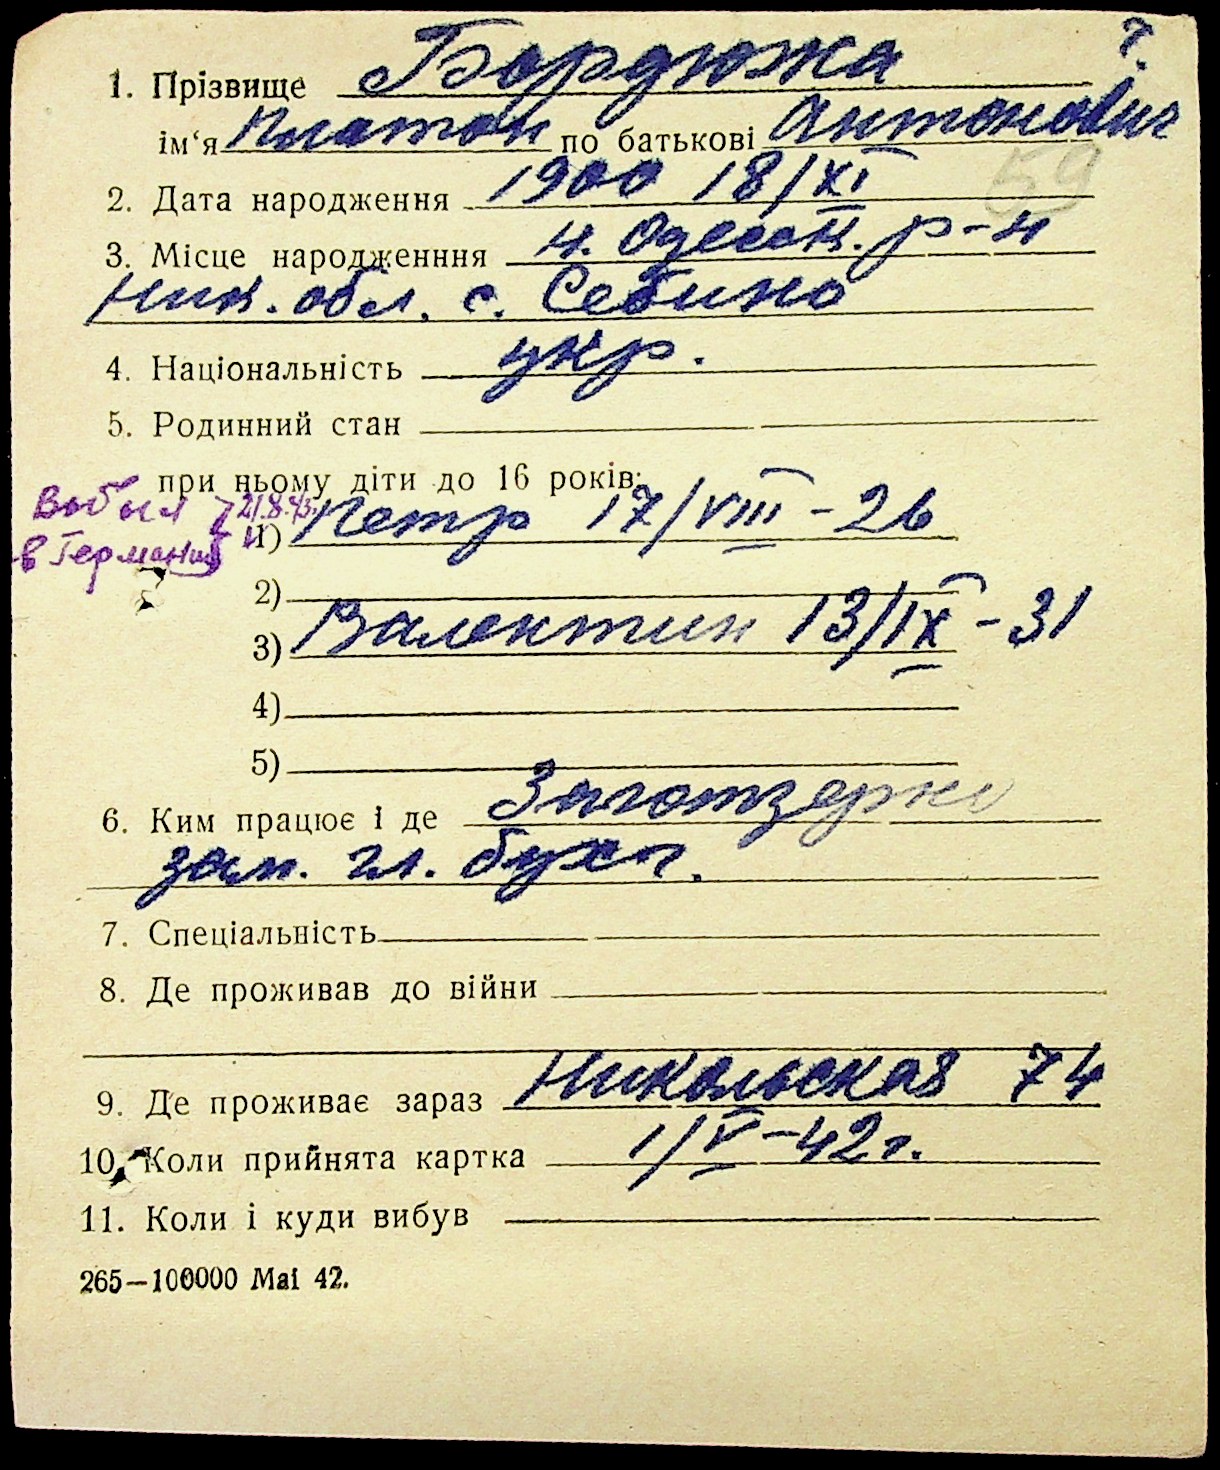 7.
1. Прізвище Бордюжа
ім'я Платон по батькові Антонович
59
2. Дата народження 1900 18/XI
3. Місце народженння Н. Одесск. р-н
Ник. обл. с. Себино
4. Національність укр.
5. Родинний стан
при ньому діти до 16 років:
Выбыл 21.8.43
в Германию
1) Петр 17/VIII - 26
2)
3) Валентин 13/IX - 31
4)
5)
6. Ким працює і де Заготзерно
зам. гл. бухг.
7. Спеціальність
8. Де проживав до війни
9. Де проживає зараз Никольская 74
10. Коли прийнята картка 1/V-42 г.
11. Коли і куди вибув
265—100000 Mai 42.